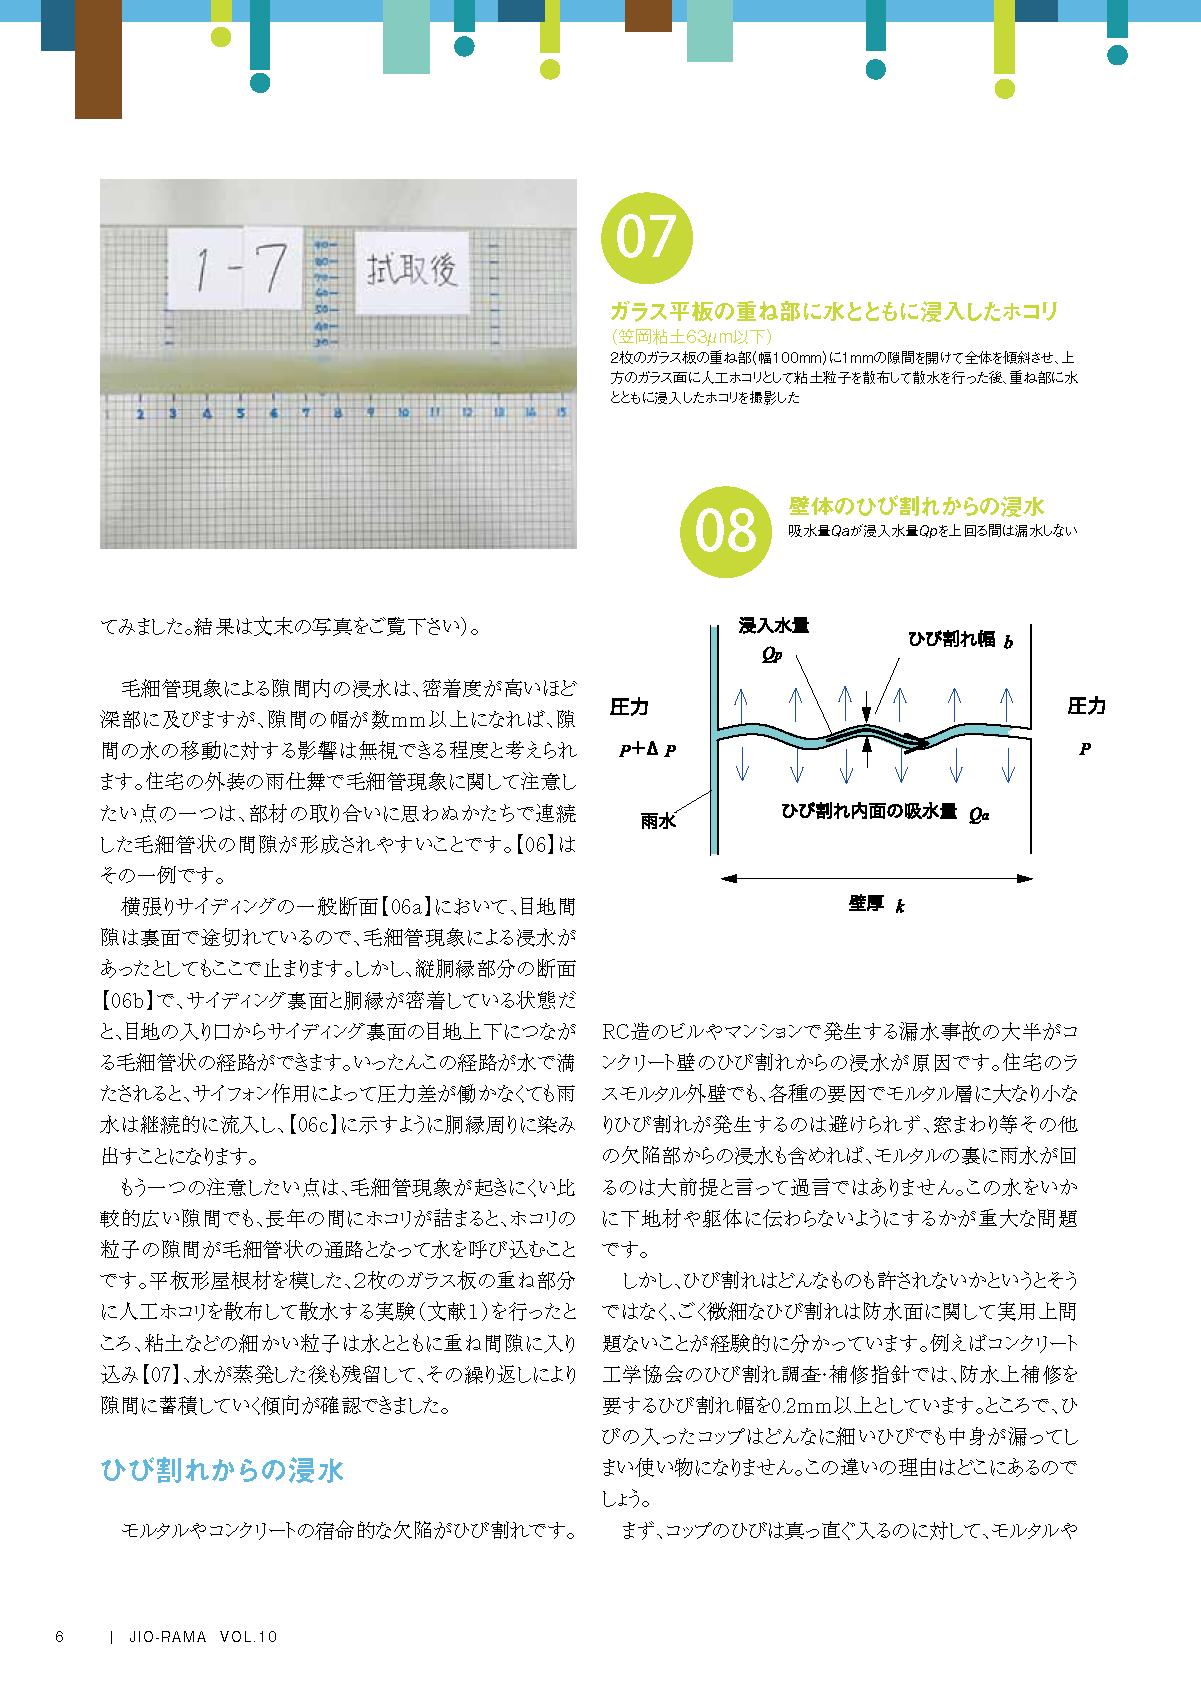 1-7
拭取後
90
80
70
60
50
40
30
1 2 3 4 5 6 7 8 9 10 11 12 13 14 15
07
ガラス平板の重ね部に水とともに浸入したホコリ
(笠岡粘土63μm以下)
2枚のガラス板の重ね部(幅100mm)に1mmの隙間を開けて全体を傾斜させ、上
方のガラス面に人工ホコリとして粘土粒子を散布して散水を行った後、重ね部に水
とともに浸入したホコリを撮影した
08
壁体のひび割れからの浸水
吸水量Qaが浸入水量Qpを上回る間は漏水しない
浸入水量
Qp
ひび割れ幅 b
圧力
P+Δ P
圧力
P
雨水
ひび割れ内面の吸水量 Qa
壁厚 k
てみました。結果は文末の写真をご覧下さい)。
毛細管現象による隙間内の浸水は、密着度が高いほど
深部に及びますが、隙間の幅が数mm以上になれば、隙
間の水の移動に対する影響は無視できる程度と考えられ
ます。住宅の外装の雨仕舞で毛細管現象に関して注意し
たい点の一つは、部材の取り合いに思わぬかたちで連続
した毛細管状の間隙が形成されやすいことです。【06】は
その一例です。
横張りサイディングの一般断面【06a】において、目地間
隙は裏面で途切れているので、毛細管現象による浸水が
あったとしてもここで止まります。しかし、縦胴縁部分の断面
【06b】で、サイディング裏面と胴縁が密着している状態だ
と、目地の入り口からサイディング裏面の目地上下につなが
る毛細管状の経路ができます。いったんこの経路が水で満
たされると、サイフォン作用によって圧力差が働かなくても雨
水は継続的に流入し、【06c】に示すように胴縁周りに染み
出すことになります。
もう一つの注意したい点は、毛細管現象が起きにくい比
較的広い隙間でも、長年の間にホコリが詰まると、ホコリの
粒子の隙間が毛細管状の通路となって水を呼び込むこと
です。平板形屋根材を模した、2枚のガラス板の重ね部分
に人工ホコリを散布して散水する実験(文献1)を行ったと
ころ、粘土などの細かい粒子は水とともに重ね間隙に入り
込み【07】、水が蒸発した後も残留して、その繰り返しにより
隙間に蓄積していく傾向が確認できました。
ひび割れからの浸水
モルタルやコンクリートの宿命的な欠陥がひび割れです。
RC造のビルやマンションで発生する漏水事故の大半がコ
ンクリート壁のひび割れからの浸水が原因です。住宅のラ
スモルタル外壁でも、各種の要因でモルタル層に大なり小な
りひび割れが発生するのは避けられず、窓まわり等その他
の欠陥部からの浸水も含めれば、モルタルの裏に雨水が回
るのは大前提と言って過言ではありません。この水をいか
に下地材や躯体に伝わらないようにするかが重大な問題
です。
しかし、ひび割れはどんなものも許されないかというとそう
ではなく、ごく微細なひび割れは防水面に関して実用上問
題ないことが経験的に分かっています。例えばコンクリート
工学協会のひび割れ調査・補修指針では、防水上補修を
要するひび割れ幅を0.2mm以上としています。ところで、ひ
びの入ったコップはどんなに細いひびでも中身が漏ってし
まい使い物になりません。この違いの理由はどこにあるので
しょう。
まず、コップのひびは真っ直ぐ入るのに対して、モルタルや
6 | JIO-RAMA VOL.10